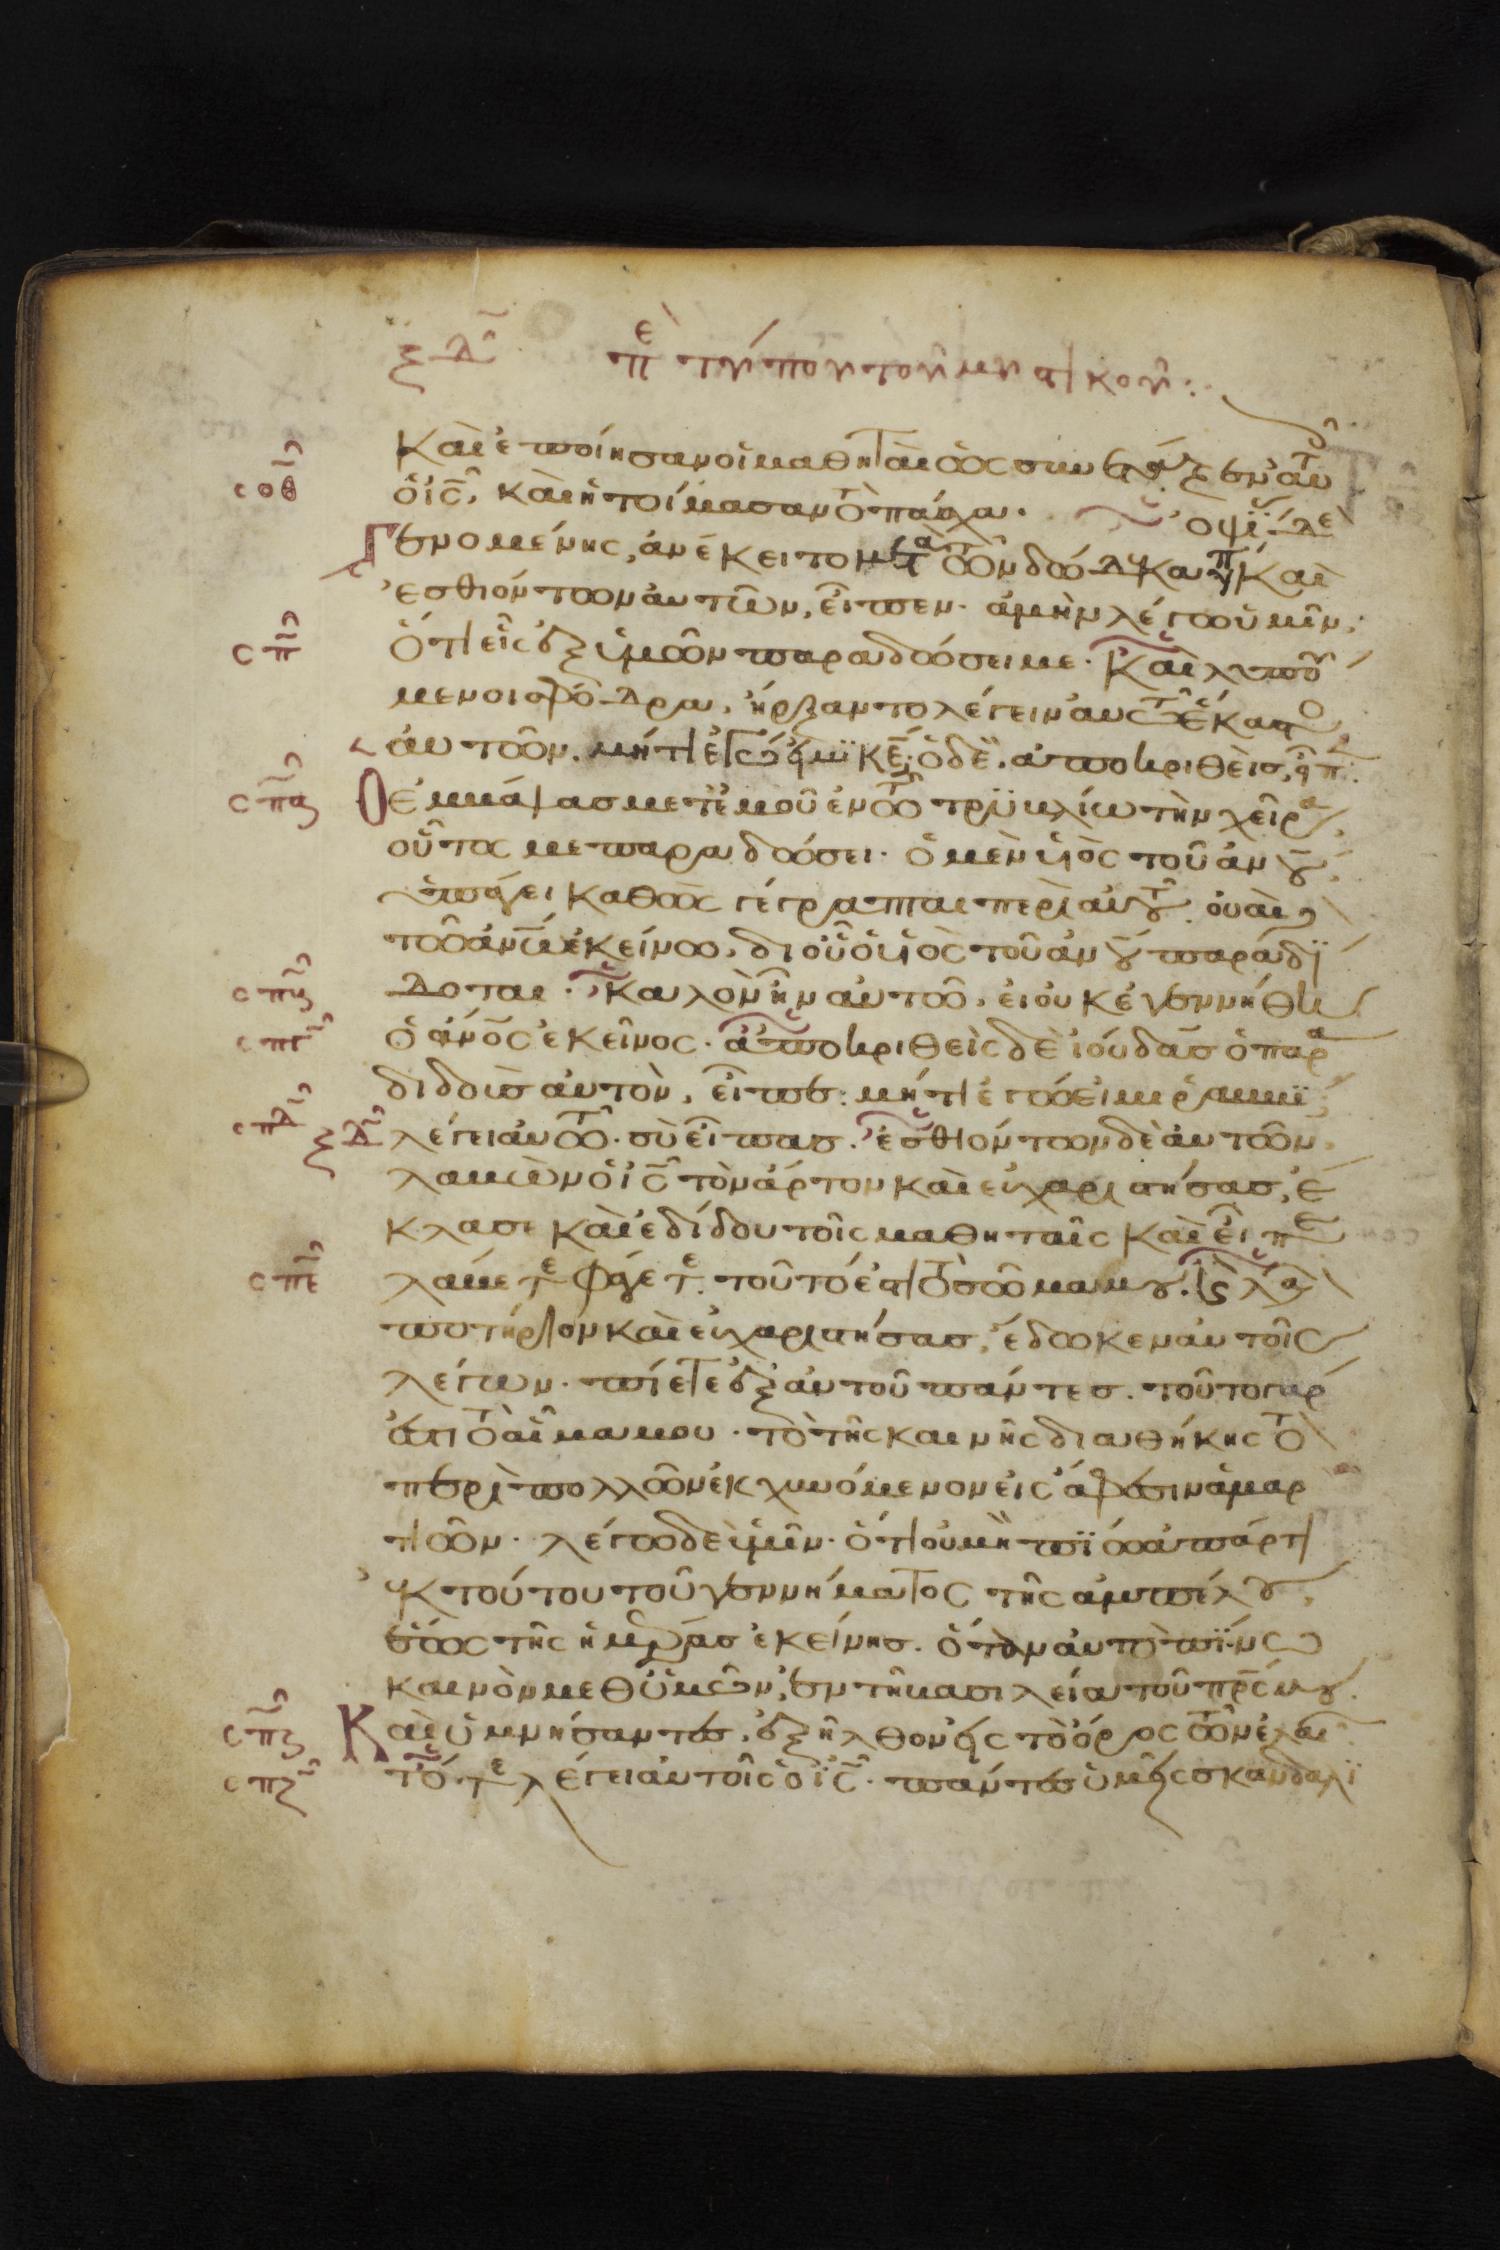 ξδ πε τύπου τοῦ μυστικοῦ:
Καὶ ἐποίησαν οἱ μαθηταὶ ὡς συνέταξεν αὐτ
σοθ ὁ ις, καὶ ἡτοίμασαν τὸ πάσχα. ὀψίας δὲ
γενομένης, ἀνέκειτο μετὰ τῶν δώδεκα καὶ
ἐσθιόντων αὐτῶν, εἶπεν· ἀμὴν λέγω ὑμῖν,
σπ ὅτι εἷς ἐξ ὑμῶν παραδώσει με· καὶ λυπού
μενοι σφόδρα, ἤρξαντο λέγειν αὐτῶ ἕκαστο
αὐτῶν. μήτι ἐγώ εἰμϊ κε· ὁ δὲ, ἀποκριθεὶς, εἶπ
σπα Ὁ ἐμβάψας μετ ἐμοῦ ἐν τῶ τρϋβλίω τὴν χεῖρα
οὗτος με παραδώσει· ὁ μὲν υἱὸς τοῦ ἀνου
ὑπάγει καθὼς γέγραπται περὶ αὐτοῦ. οὐαὶ
τῶ ἀνω ἐκείνω, δι οὗ ὁ υἱὸς τοῦ ἀνου παραδί
σπβ δοται· καλὸν ἦν αὐτῶ, εἰ οὐκ ἐγεννήθη
σπγ ὁ ἀνος ἐκεῖνος· ἀποκριθεὶς δὲ ἰούδας ὁ παρα
διδοὺς αὐτὸν, εἶπε· μήτι ἐγώ εἰμι ῥαββϊ
σπδ ξδ λέγει αὐτῶ· σὺ εἶπας. ἐσθιόντων δὲ αὐτῶν
λαβὼν ὁ ις τὸν ἄρτον καὶ εὐχαριστήσας, ἔ
κλασε καὶ ἐδίδου τοῖς μαθηταῖς καὶ εἶπε
σπε λάβετε φάγετε. τοῦτό ἐστι τὸ σῶμα μου. καὶ λα
ποτήριον καὶ εὐχαριστήσας, ἔδωκεν αὐτοῖς
λέγων· πίετε ἐξ αὐτοῦ πάντες. τοῦτο γάρ
ἐστι τὸ αἷμα μου· τὸ τῆς καινῆς διαθήκης τὸ
περὶ πολλῶν ἐκχυνόμενον εἰς ἄφεσιν ἁμαρ
τιῶν· λέγω δὲ ὑμῖν· ὅτι οὐ μὴ πϊω ἀπάρτι
ἐκ τούτου τοῦ γεννήματος τῆς ἀμπέλου,
ἕως τῆς ἡμέρας ἐκείνης. ὅταν αὐτὸ πϊνω
καινὸν μεθ ὑμῶν, ἐν τῆ βασιλεία του πρς μου.
σπς Καὶ ὑμνήσαντες, ἐξῆλθον εἰς τὸ ὄρος τῶν ἐλαι
σπζ τότε λέγει αὐτοῖς ὁ ϊς· πάντες ὑμεῖς σκανδαλι